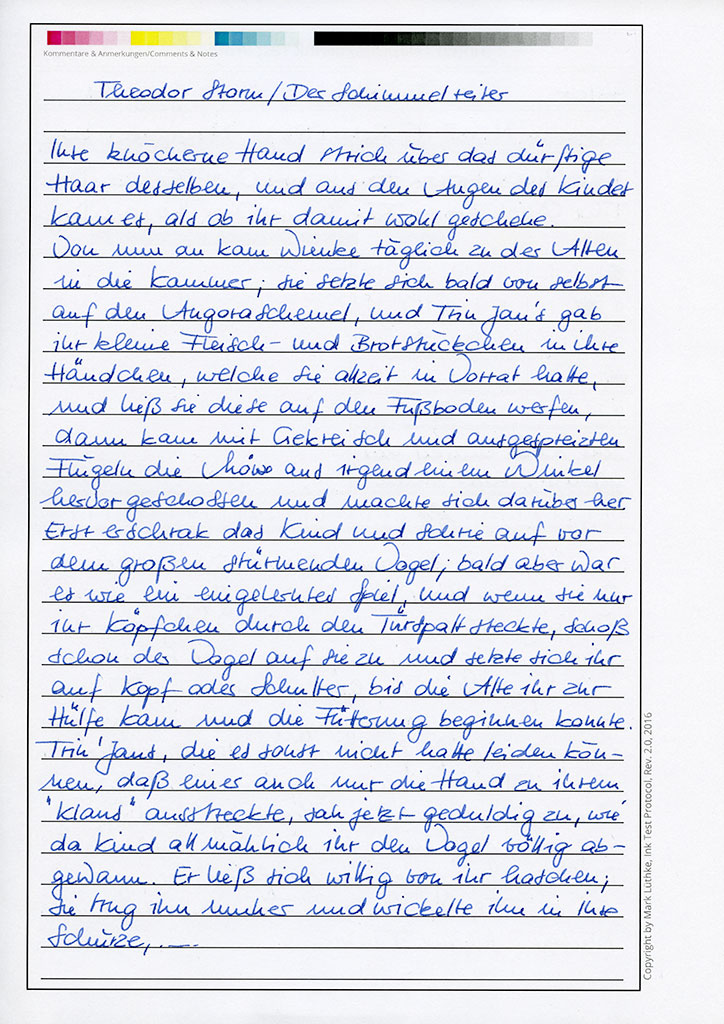 Kommentare & Anmerkungen/Comments & Notes
Theodor Storm/Der Schimmelreiter
Ihre knöcherne Hand strich über das dürftige
Haar desselben, und aus den Augen des Kindes
kam es, als ob ihr damit wohl geschehe.
Von nun an kam Wienke täglich zu der Alten
in die Kammer; sie setzte sich bald von selbst
auf den Angoraschemel, und Trin Jan's gab
ihr kleine Fleisch- und Brotstückchen in ihre
Händchen, welche sie allzeit in Vorrat hatte,
und ließ sie diese auf den Fußboden werfen,
dann kam mit Gekreisch und ausgespreizten
Flügeln die Möwe aus irgend einem Winkel
hervorgeschossen und machte sich darüber her
Erst erschrak das Kind und schrie auf vor
dem großen stürmenden Vogel; bald aber war
es wie ein eingelerntes Spiel, und wenn sie nur
ihr Köpfchen durch den Türspalt steckte, schoß
schon der Vogel auf sie zu und setzte sich ihr
auf Kopf oder Schulter, bis die Alte ihr zur
Hülfe kam und die Fütterung beginnen konnte.
Trin' Jans, die es sonst nicht hatte leiden kön-
nen, daß einer auch nur die Hand zu ihrem
"Klaus" ausstreckte, sah jetzt geduldig zu, wie
da Kind allmählich ihr den Vogel völlig ab-
gewann. Er ließ sich willig von ihr haschen;
sie trug ihn umher und wickelte ihn in ihre
Schürze, .—
Copyright by Mark Lüthke, Ink Test Protocol, Rev. 2.0, 2016